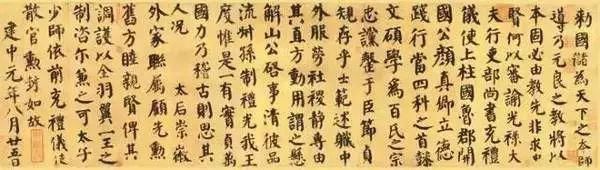 勅國儲為天下之本師
導乃元良之教將以
本固必由教先非求忠
賢何以審諭光祿大
夫行吏部尚書充禮
儀使上柱國魯郡開
國公顏真卿立德
踐行當四科之首懿
文碩學為百氏之宗
忠讜罄于臣節貞
規存乎士範述職中
外服勞社稷靜專由
其直方動用謂之懸
解山公啓事清彼品
流叔孫制禮光我王
度惟是一有實貞萬
國力乃稽古則思其
人況 太后崇徽
外家聯屬顧先勳
舊方睦親賢俾其
調護以全羽翼一王之
制咨爾兼之可太子
少師依前充禮儀使
散官勳封如故
建中元年八月廿五日